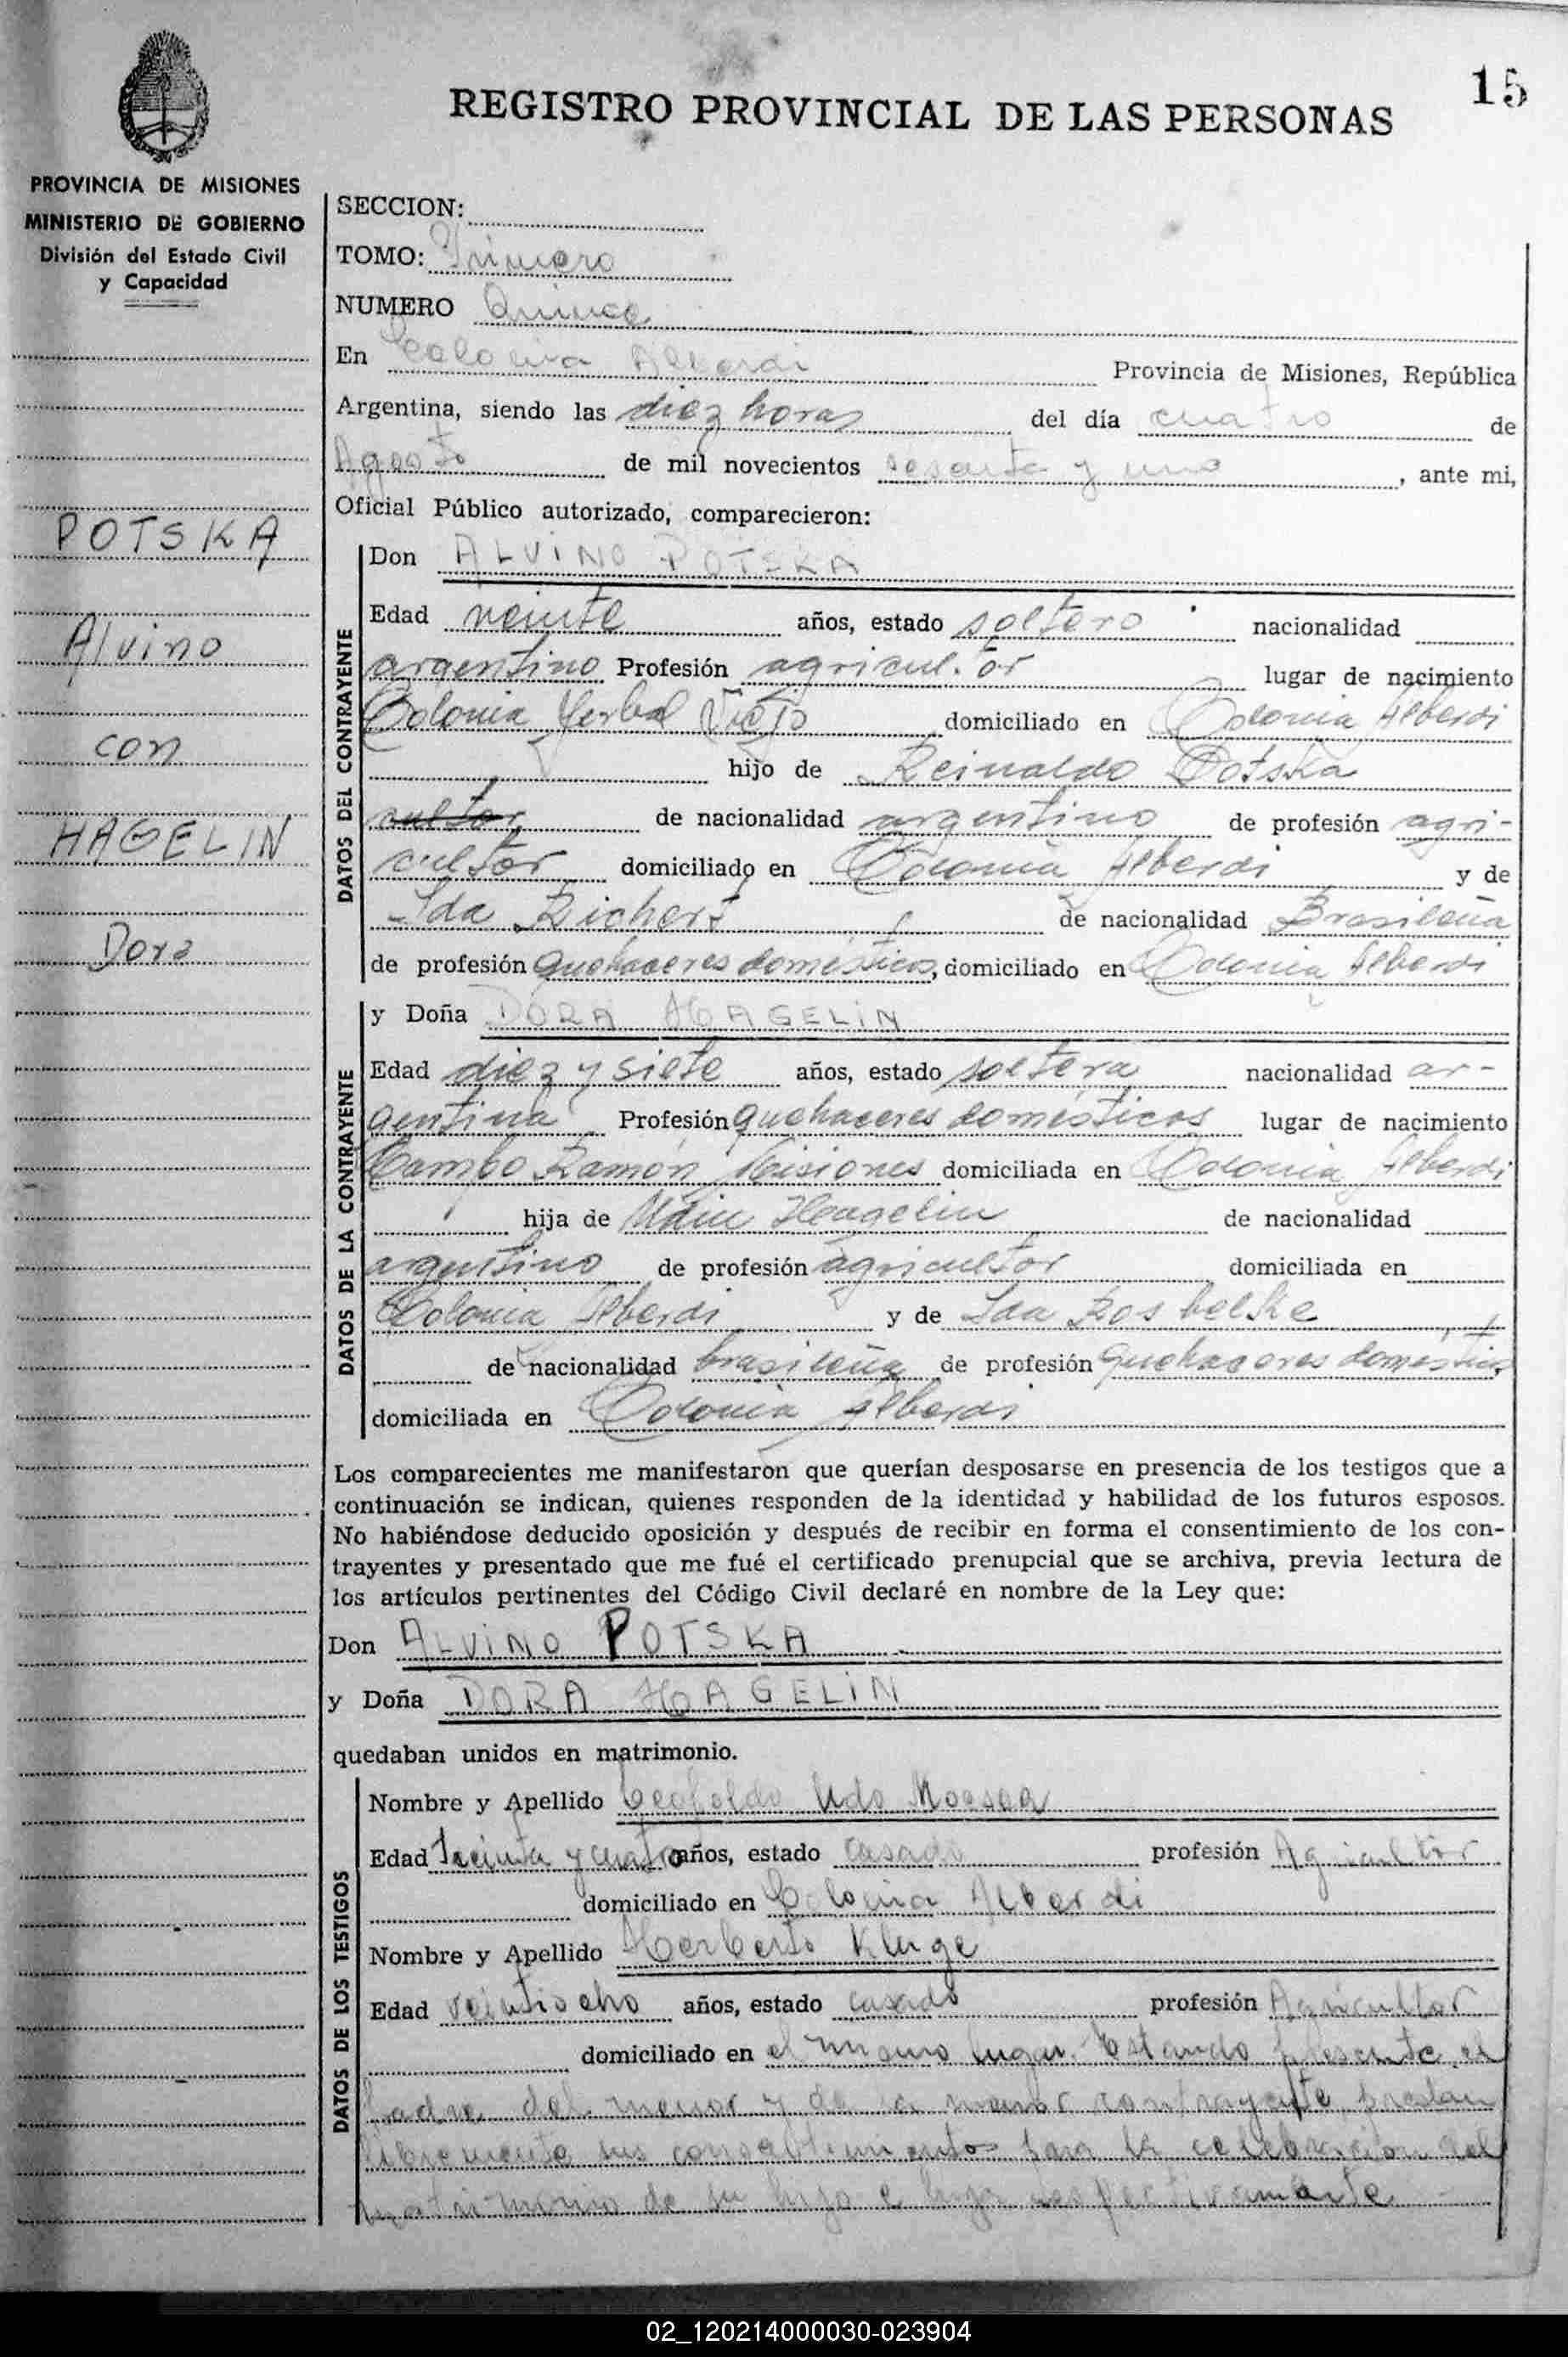 15
REGISTRO PROVINCIAL DE LAS PERSONAS
PROVINCIA DE MISIONES
MINISTERIO DE GOBIERNO
División del Estado Civil
y Capacidad
POTSKA
Alvino
con
HAGELIN
Dora
SECCION:
TOMO: Primero
NUMERO Quince
En Colonia Alberdi Provincia de Misiones, República
Argentina, siendo las diez horas del día cuatro de
Agosto de mil novecientos sesenta y uno, ante mi,
Oficial Público autorizado, comparecieron:
DATOS DEL CONTRAYENTE
Don ALVINO POTSKA
Edad veinte años, estado soltero nacionalidad
argentino Profesión agricultor lugar de nacimiento
Colonia Yerbal Viejo domiciliado en Colonia Alberdi
hijo de Reinaldo Potska
cultor de nacionalidad argentino de profesión agri-
cultor domiciliado en Colonia Alberdi y de
Ida Richert de nacionalidad Brasileña
de profesión quehaceres domésticos, domiciliado en Colonia Alberdi
DATOS DE LA CONTRAYENTE
y Doña DORA HAGELIN
Edad diez y siete años, estado soltera nacionalidad ar-
gentina Profesión quehaceres domésticos lugar de nacimiento
Campo Ramón Misiones domiciliada en Colonia Alberdi
hija de Hagelin de nacionalidad
argentino de profesión agricultor domiciliada en
Colonia Alberdi y de Ida Rosbelke
de nacionalidad brasileña de profesión quehaceres domésticos,
domiciliada en Colonia Alberdi
Los comparecientes me manifestaron que querían desposarse en presencia de los testigos que a
continuación se indican, quienes responden de la identidad y habilidad de los futuros esposos.
No habiéndose deducido oposición y después de recibir en forma el consentimiento de los con-
trayentes y presentado que me fué el certificado prenupcial que se archiva, previa lectura de
los artículos pertinentes del Código Civil declaré en nombre de la Ley que:
Don ALVINO POTSKA
y Doña DORA HAGELIN
quedaban unidos en matrimonio.
DATOS DE LOS TESTIGOS
Nombre y Apellido Leopoldo Udo Moeser
Edad Treinta y cuatro años, estado casado profesión Agricultor
domiciliado en Colonia Alberdi
Nombre y Apellido Herberto Kluge
Edad veintiocho años, estado casado profesión Agricultor
domiciliado en el mismo lugar. Estando presente el
padre del menor y de la menor contrayente prestan
libremente sus consentimientos para la celebración del
matrimonio de su hijo e hija respectivamente
02_120214000030-023904